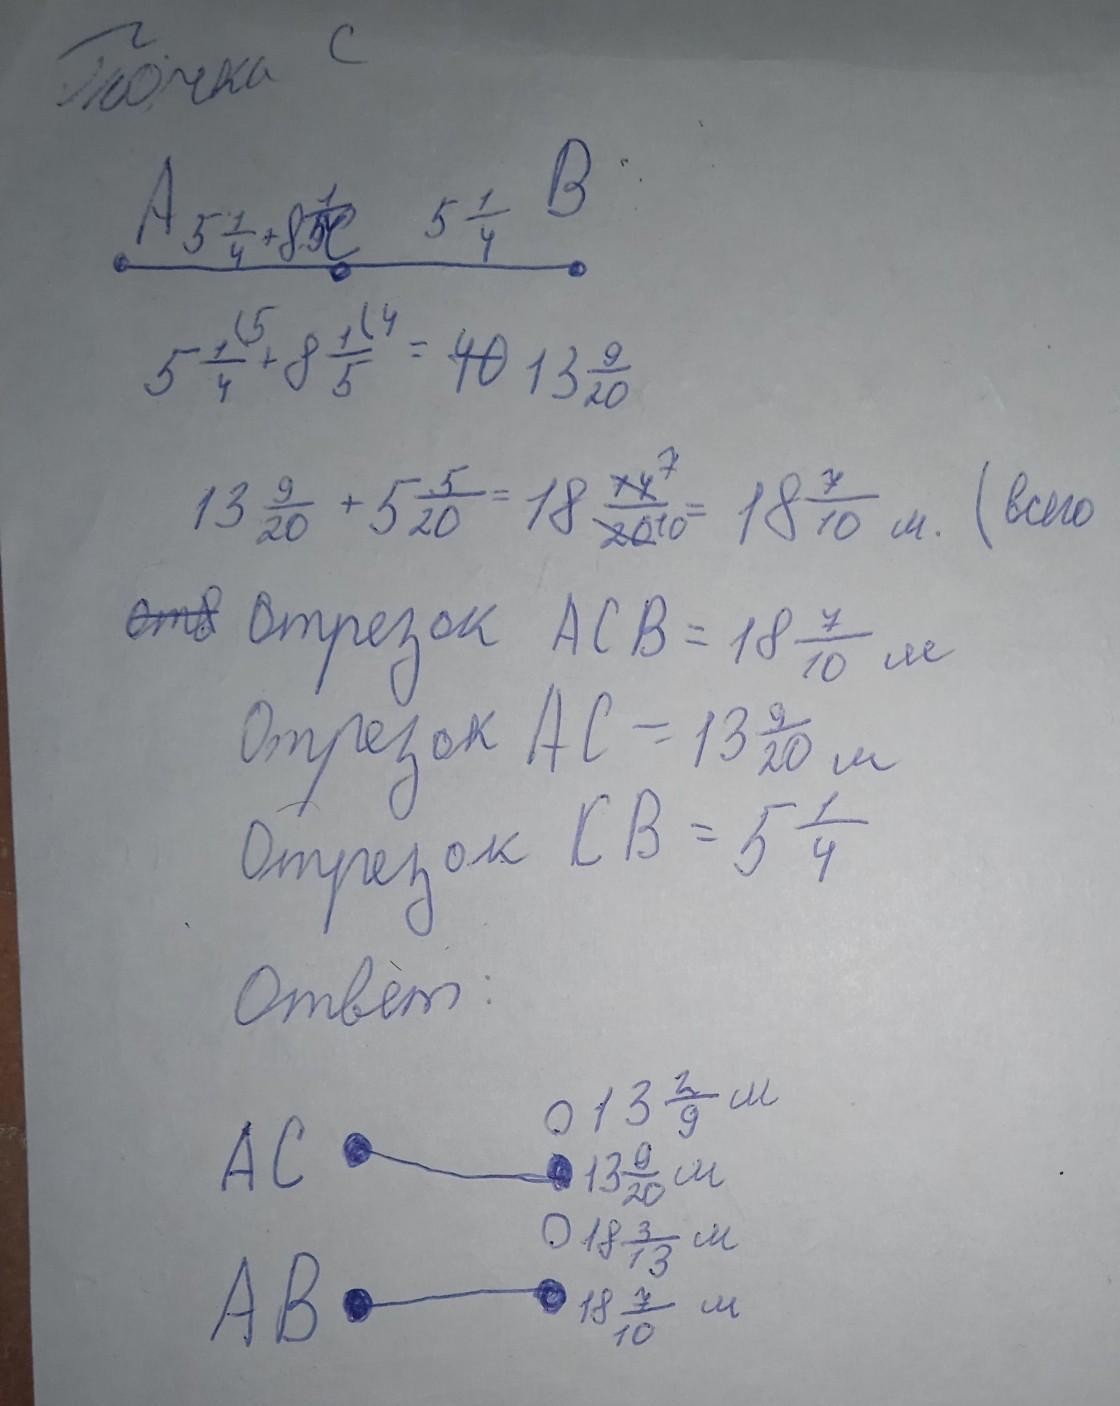 Точка C
A 5 1/4 + 8 1/5 C 5 1/4 B
5 1/4 (5 + 8 1/5 (4 = 40 13 9/20
13 9/20 + 5 5/20 = 18 14/20 7/10 = 18 7/10 м. (всего
Отв Отрезок ACB = 18 7/10 м
Отрезок AC = 13 9/20 м
Отрезок CB = 5 1/4
Ответ:
13 2/9 м
AC 13 9/20 м
18 3/13 м
AB 18 7/10 м